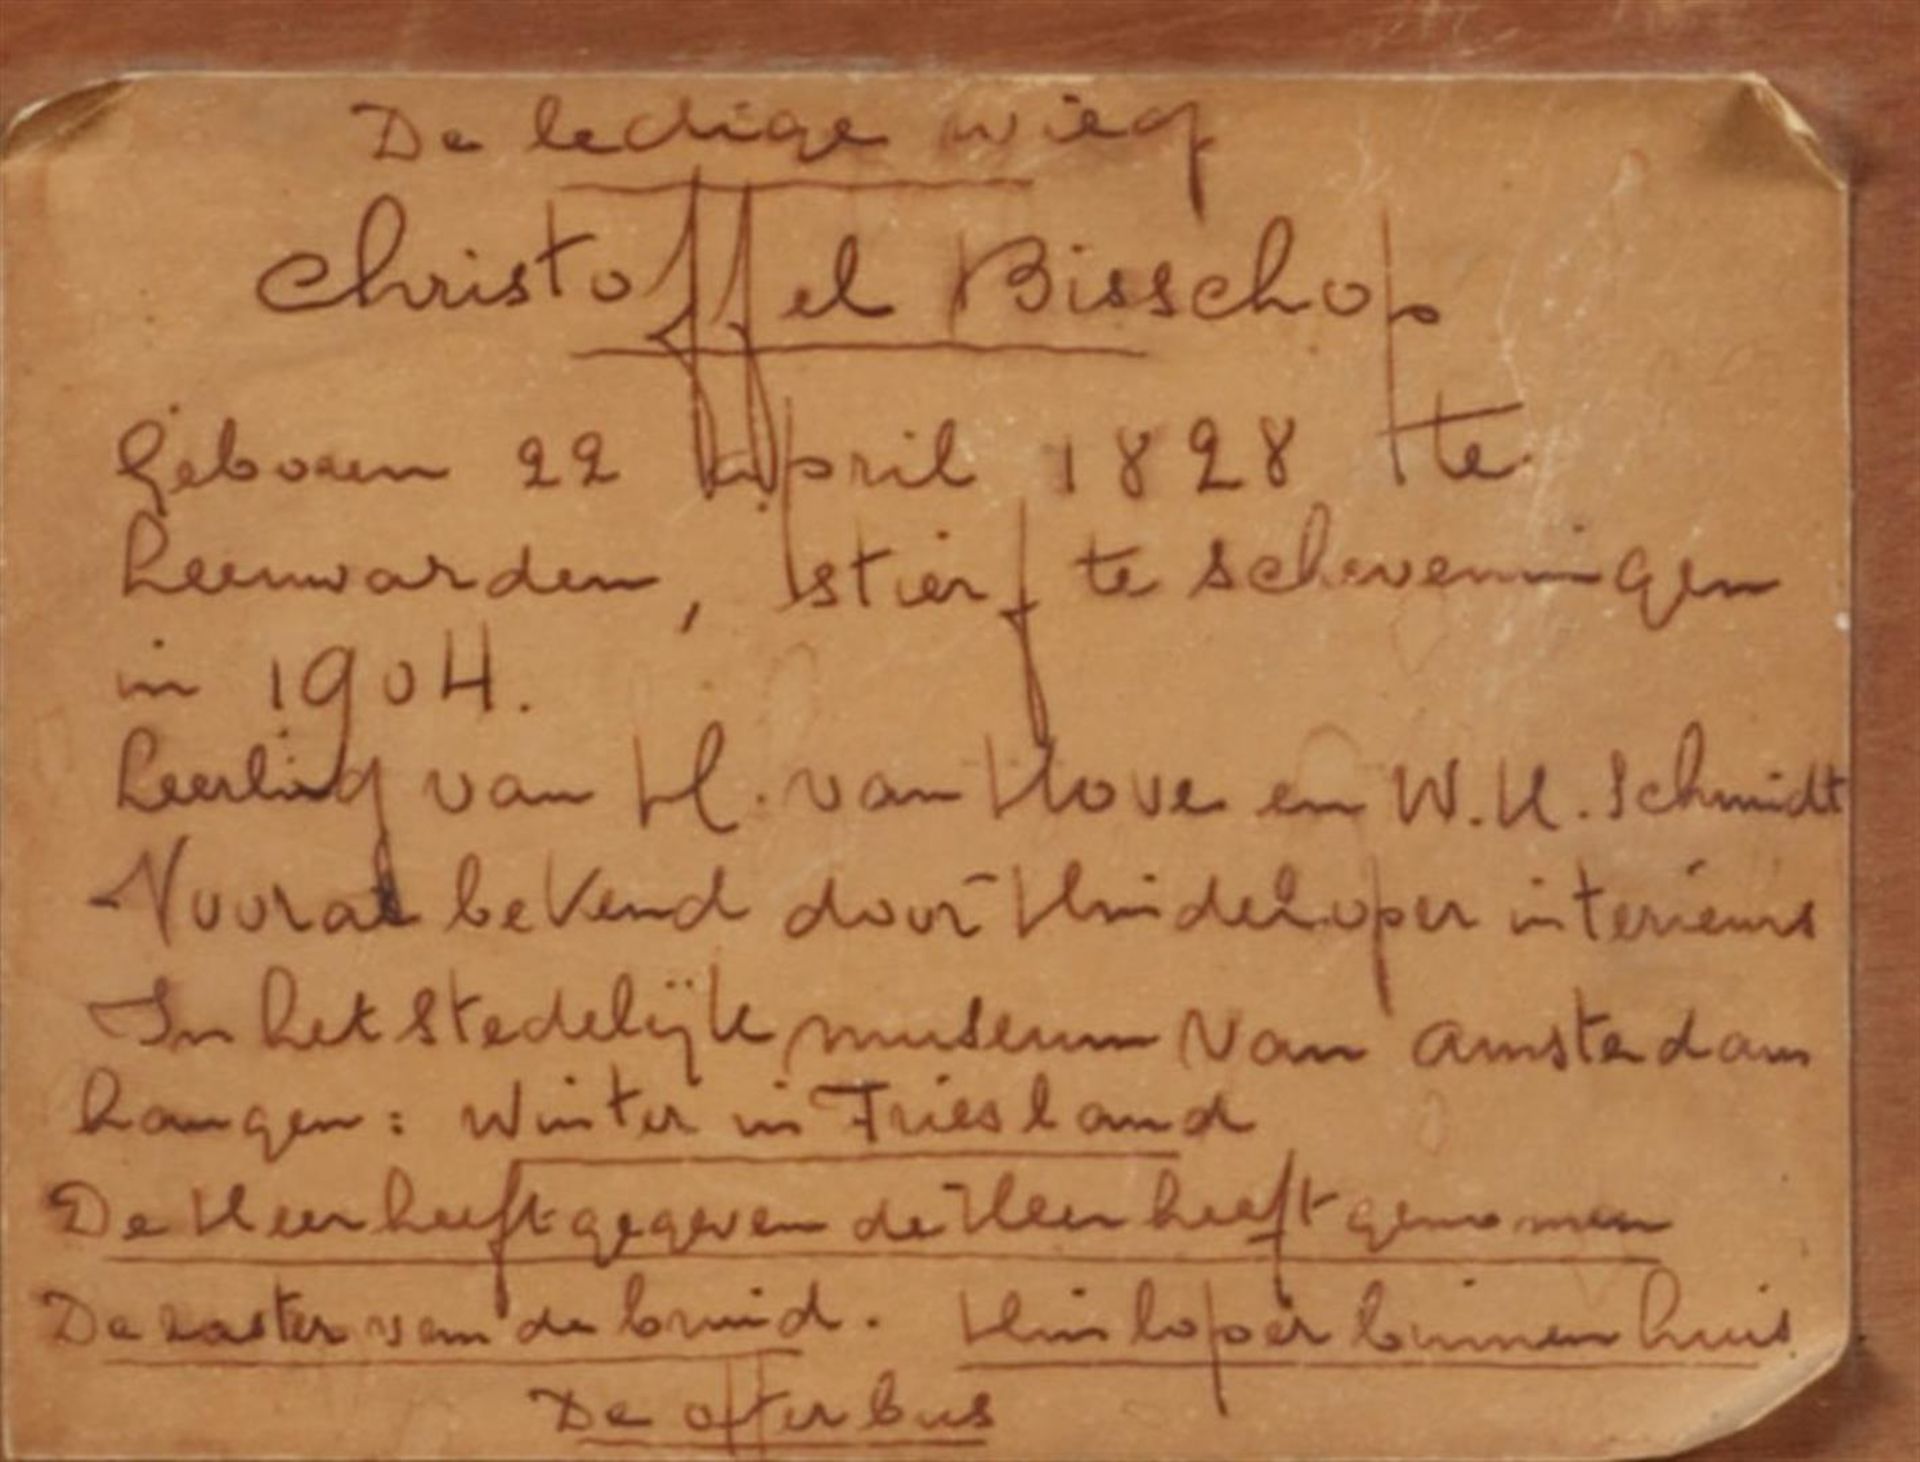 De ledige wieg
Christoffel Bisschop
Geboren 22 april 1828 te
Leeuwarden, stierf te scheveningen
in 1904.
Leerling van H. van Hove en W.H. Schmidt
Vooral bekend door Hindeloper interieurs
In het stedelijk museum van amsterdam
hangen: Winter in Friesland
De Heer heeft gegeven de Heer heeft genomen
De zaster van de bruid. Hinloper binnenhuis
De offerbus